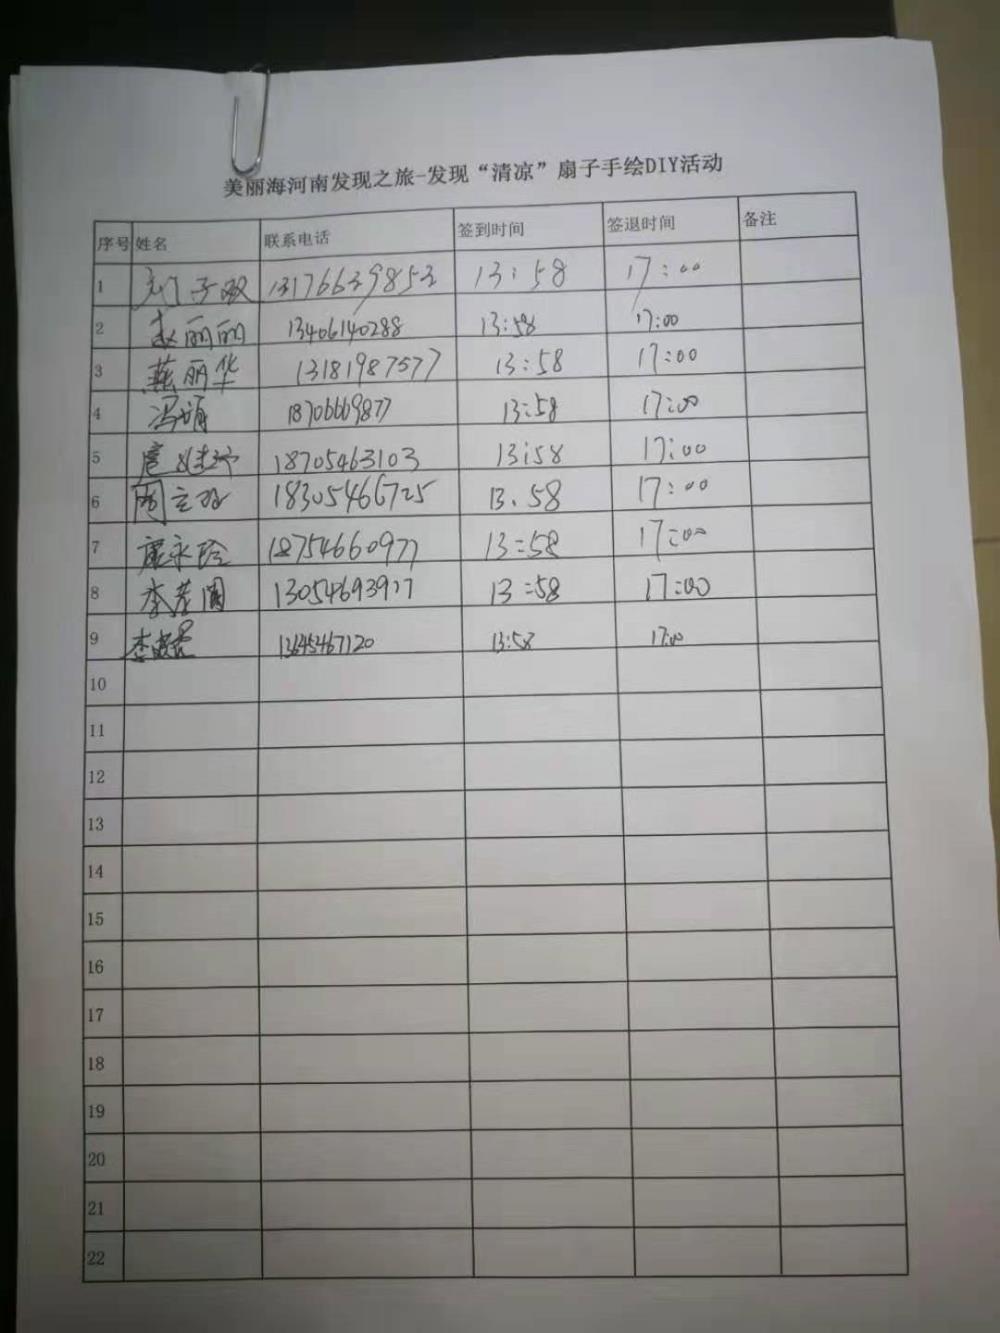 美丽海河南发现之旅-发现“清凉”扇子手绘DIY活动
序号 姓名 联系电话 签到时间 签退时间 备注
1 13176639853 13:58 17:00
2 赵丽丽 13406140288 13:58 17:00
3 燕丽华 13181987577 13:58 17:00
4 冯娟 18706669877 13:58 17:00
5 18705463103 13:58 17:00
6 周立 18305466725 13.58 17:00
7 永玲 18754660977 13:58 17:00
8 李 13054693917 13:58 17:00
9 李 13645467120 13:58 17:00
10
11
12
13
14
15
16
17
18
19
20
21
22